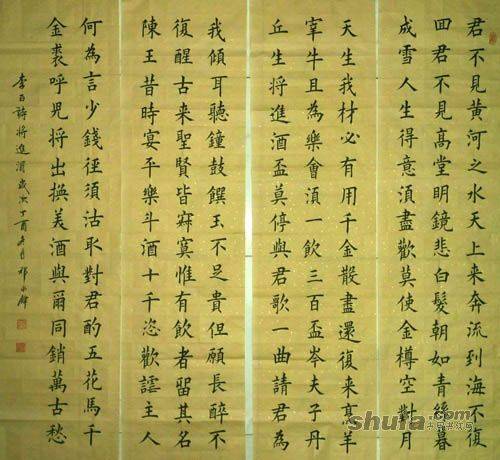 君不見黄河之水天上来奔流到海不復
囬君不見高堂明鏡悲白髮朝如青絲暮
成雪人生得意須盡歡莫使金樽空對月
天生我材必有用千金散盡還復来烹羊
宰牛且為樂會須一飲三百盃岑夫子丹
丘生将進酒盃莫停與君歌一曲請君為
我傾耳聽鐘鼓饌玉不足貴但願長醉不
復醒古来聖賢皆寂寞惟有飲者留其名
陳王昔時宴平樂斗酒十千恣歡謔主人
何為言少錢徑須沽取對君酌五花馬千
金裘呼兒将出換美酒與爾同銷萬古愁
李白詩将進酒歲次丁酉
shufa.com